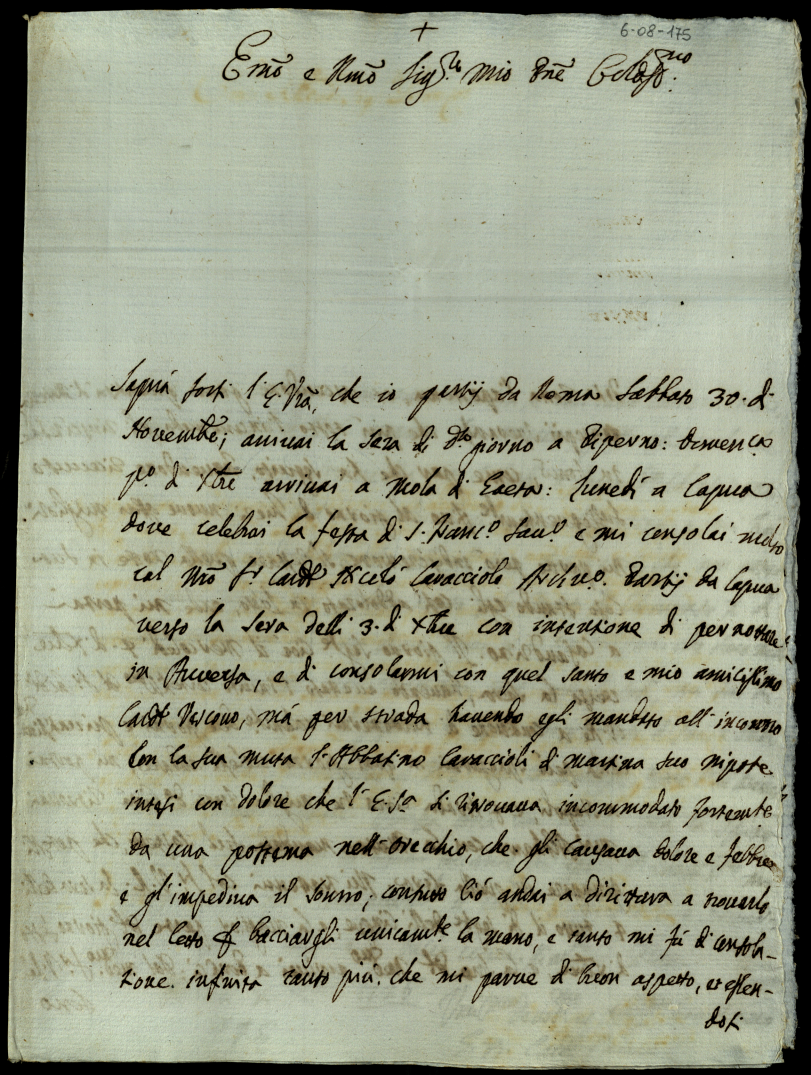 6-08-175
+
Emõ e Rmõ Sig.re mio Pnẽ Colẽsmo
Saprá forsi l'E. Vrã, che io partij da Roma Sabbato 30. di
Novembre; arrivai la sera di dto giorno a Piperno: Domenica
pº di Xbre arrivai a Mola di Gaeta: Lunedi a Capua
dove celebrai la festa di S. Francº Savº e mi consolai molto
col Nrõ Sr Cardl Caracciolo Arcivº. Partij da Capua
verso la sera delli 3. di Xbre con intenzione di pernottare
in Aversa, e di consolarmi con quel santo e mio amicissimo
Cardl Vescovo, má per strada havendo egli mandato all'incontro
con la sua muta l'Abbatino Caraccioli di Martina suo nipote
intesi con dolore che l'E. Sa si ritrovava incommodato fortemte
da una postema nell'orecchio, che gli causava dolore e febbre
e gl'impediva il sonno; contutto ció andai a dirittura a trovarlo
nel letto & bacciargli unicamte la mano, e tanto mi fú di consola-
tione infinita tanto piú che mi parve di buon aspetto, et essen-
dosi